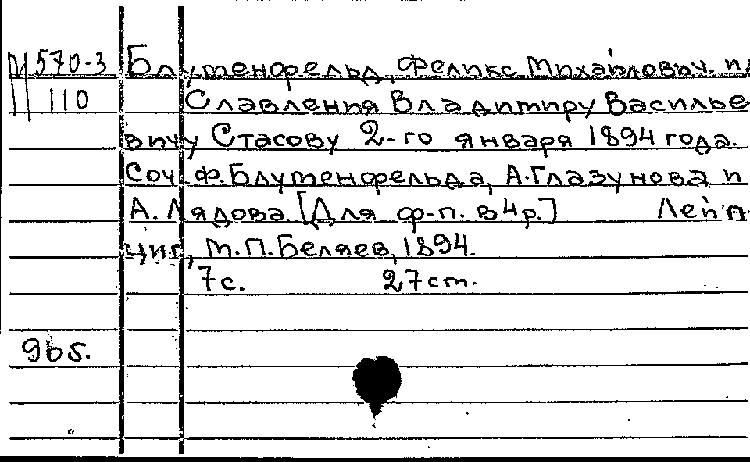 М 570-3 Блуменфельд, Феликс Михайлович. и
110 Славления Владимиру Василье
вичу Стасову 2-го января 1894 года.
Соч. Ф. Блуменфельда, А. Глазунова и
А. Лядова. [Для ф-п. в 4 р.] Лейп
циг, М. П. Беляев, 1894.
7 с. 27 ст.
965.